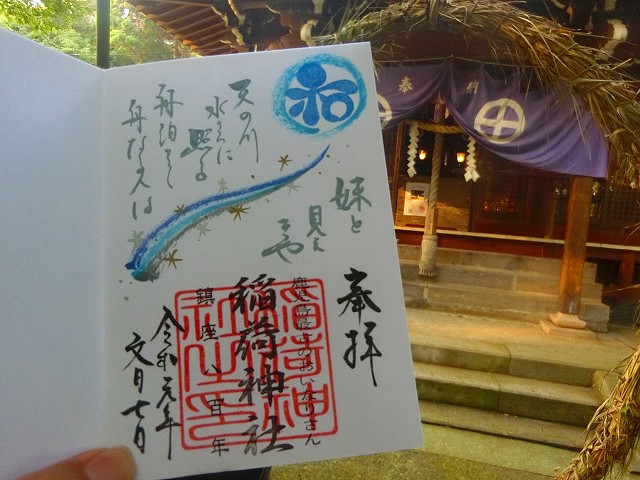 和
天の川
水さへに
照る
舟泊てて
舟なる人は
妹と
見え
きや
奉拝
のおいなりさん
稲荷神社
鎮座八百年
令和元年
文月七日
奉納